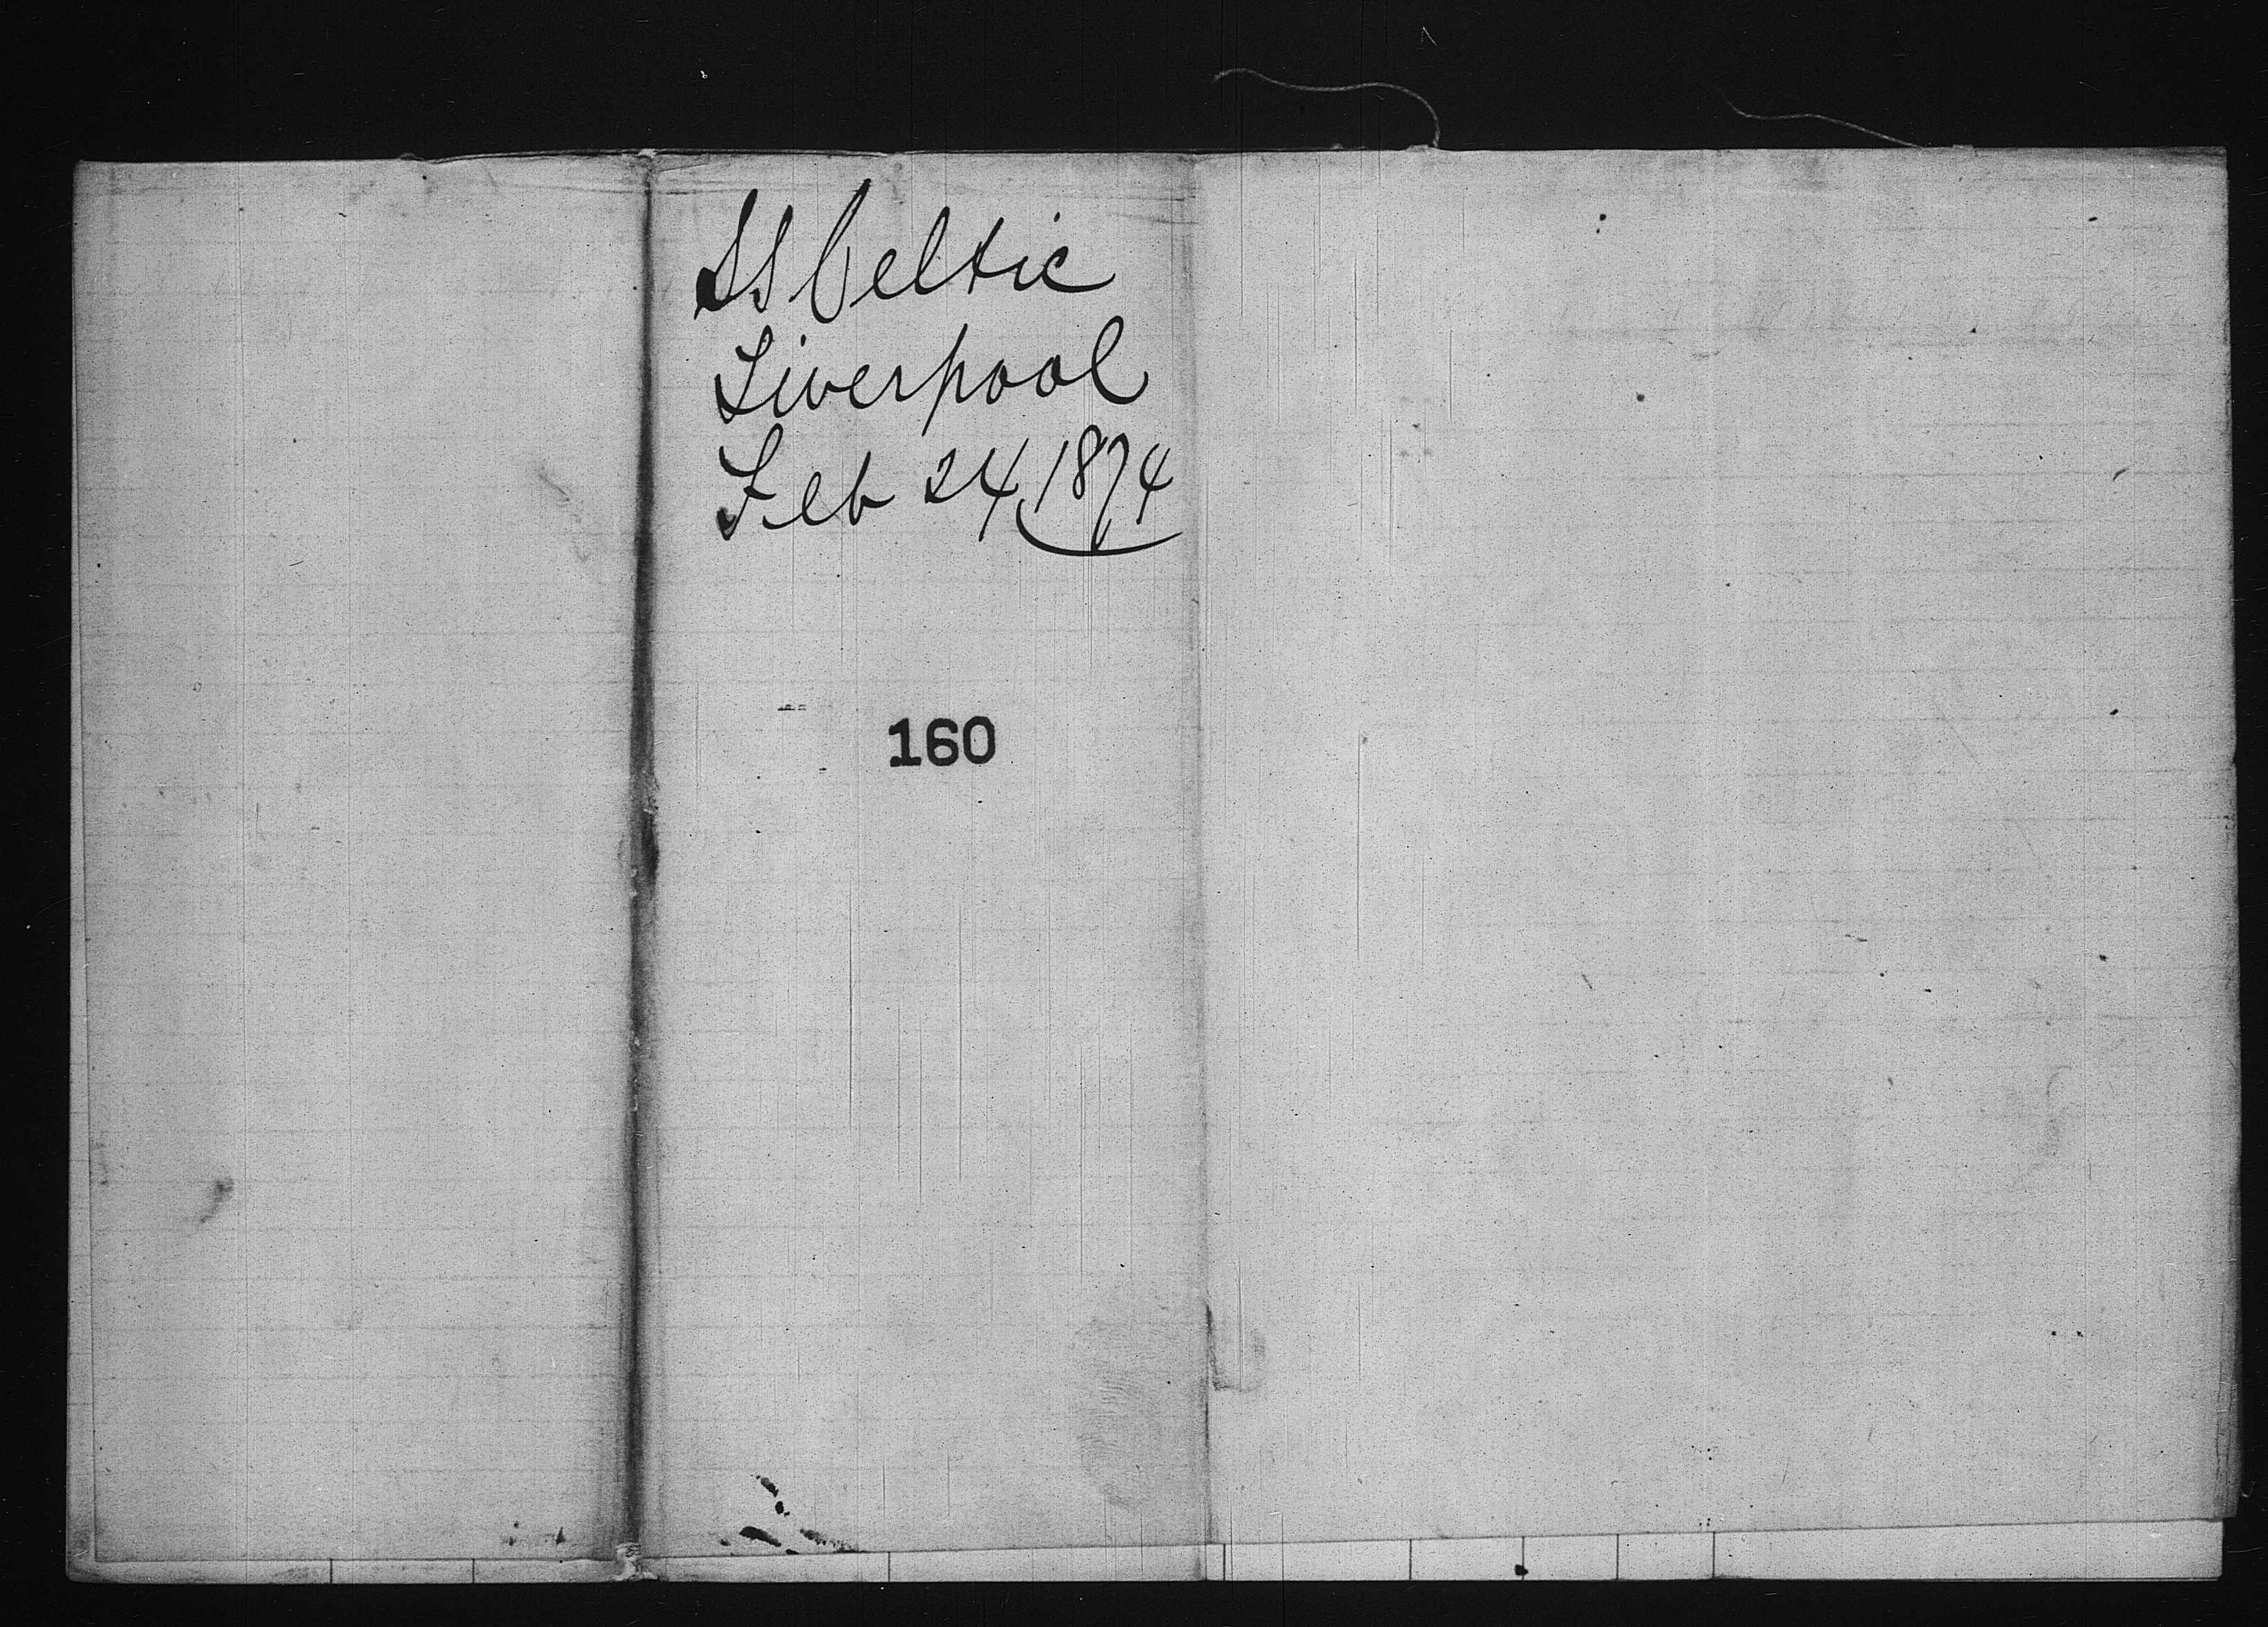 SS Celtic
Liverpool
Feb 24 1874
160